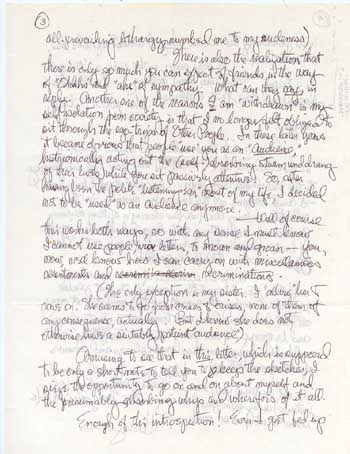 3
all-prevailing lethargy numbed me to my rudeness)
There is also the realization that
there is only so much you can expect of friends in the way
of "Ohhhs" and "ahs" of sympathy. What can they say in
reply. Another one of the reasons I am "withdrawn" in my
self-isolation from society is that I no longer feel obliged to
sit through the ego trips of Other People. In these later years
it became obvious that people use you as an "Audience"
histrionically acting out the (self-) absorbing sturm und drang
of their lives while you sit graciously attentive. So, after
having been the polite "listening" ear most of my life, I decided
not to be "used" as an audience anymore.
Well of course
this works both ways, so with any sense I must know
I cannot use people, via letters, to moan and groan — You,
now and know how I can carry on with miscellaneous
and recriminations.
(The only exception is my sister. I adore her &
She seems to go from crises to crises, none of them of
any consequence actually. But she does
otherwise have a suitably patient audience)
Amusing to see that in this letter, which is supposed
to be only a short note to tell you to keep the sketches, I
seize the opportunity to go on and on about myself and
the presumably absorbing whys and wherefores of it all.
Enough of this introspection! Even I get fed up